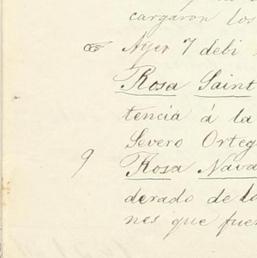 cargaron los
☞ Ayer 7 debi
Rosa Saint
tencia á la
Severo Orteg
9 Rosa Nava
derado de lo
nes que fue